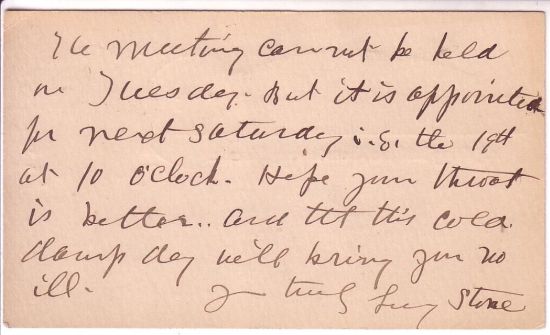 The meeting cannot be held
on Tuesday. But it is appointed
for next Saturday i.e. the 19th
at 10 o'clock. Hope your throat
is better.. and tht this cold
damp day will bring you no
ill. yrs truly Lucy Stone